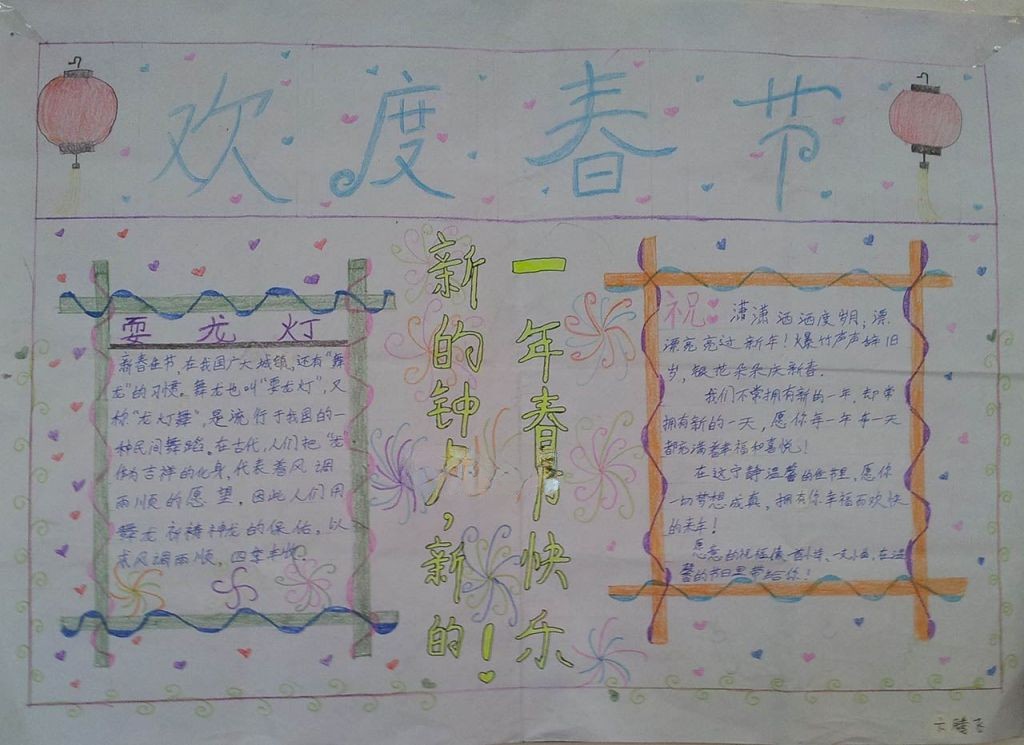 欢度春节
耍龙灯
新春佳节,在我国广大城镇,还有“舞
龙”的习惯。舞龙也叫“耍龙灯”,又
称“龙灯舞”,是流行于我国的一
种民间舞蹈。在古代,人们把“龙”
作为吉祥的化身,代表着风调
雨顺的愿望,因此人们用
舞龙祈祷神龙的保佑,以
求风调雨顺,四季丰收。
新的钟
,新的
一年春
快乐!
祝 潇潇洒洒度明,漂
漂亮亮过新年!爆竹声声辞旧
岁,银花朵朵庆新春。
我们不常拥有新的一年,却常
拥有新的一天,愿你每一年每一天
都充满着幸福和喜悦!
在这宁静温馨的佳节里,愿你
一切梦想成真,拥有你幸福而欢快
的来年!
的祝福像一首小诗、一支小曲,在温
馨的节日里带给你!
腾飞